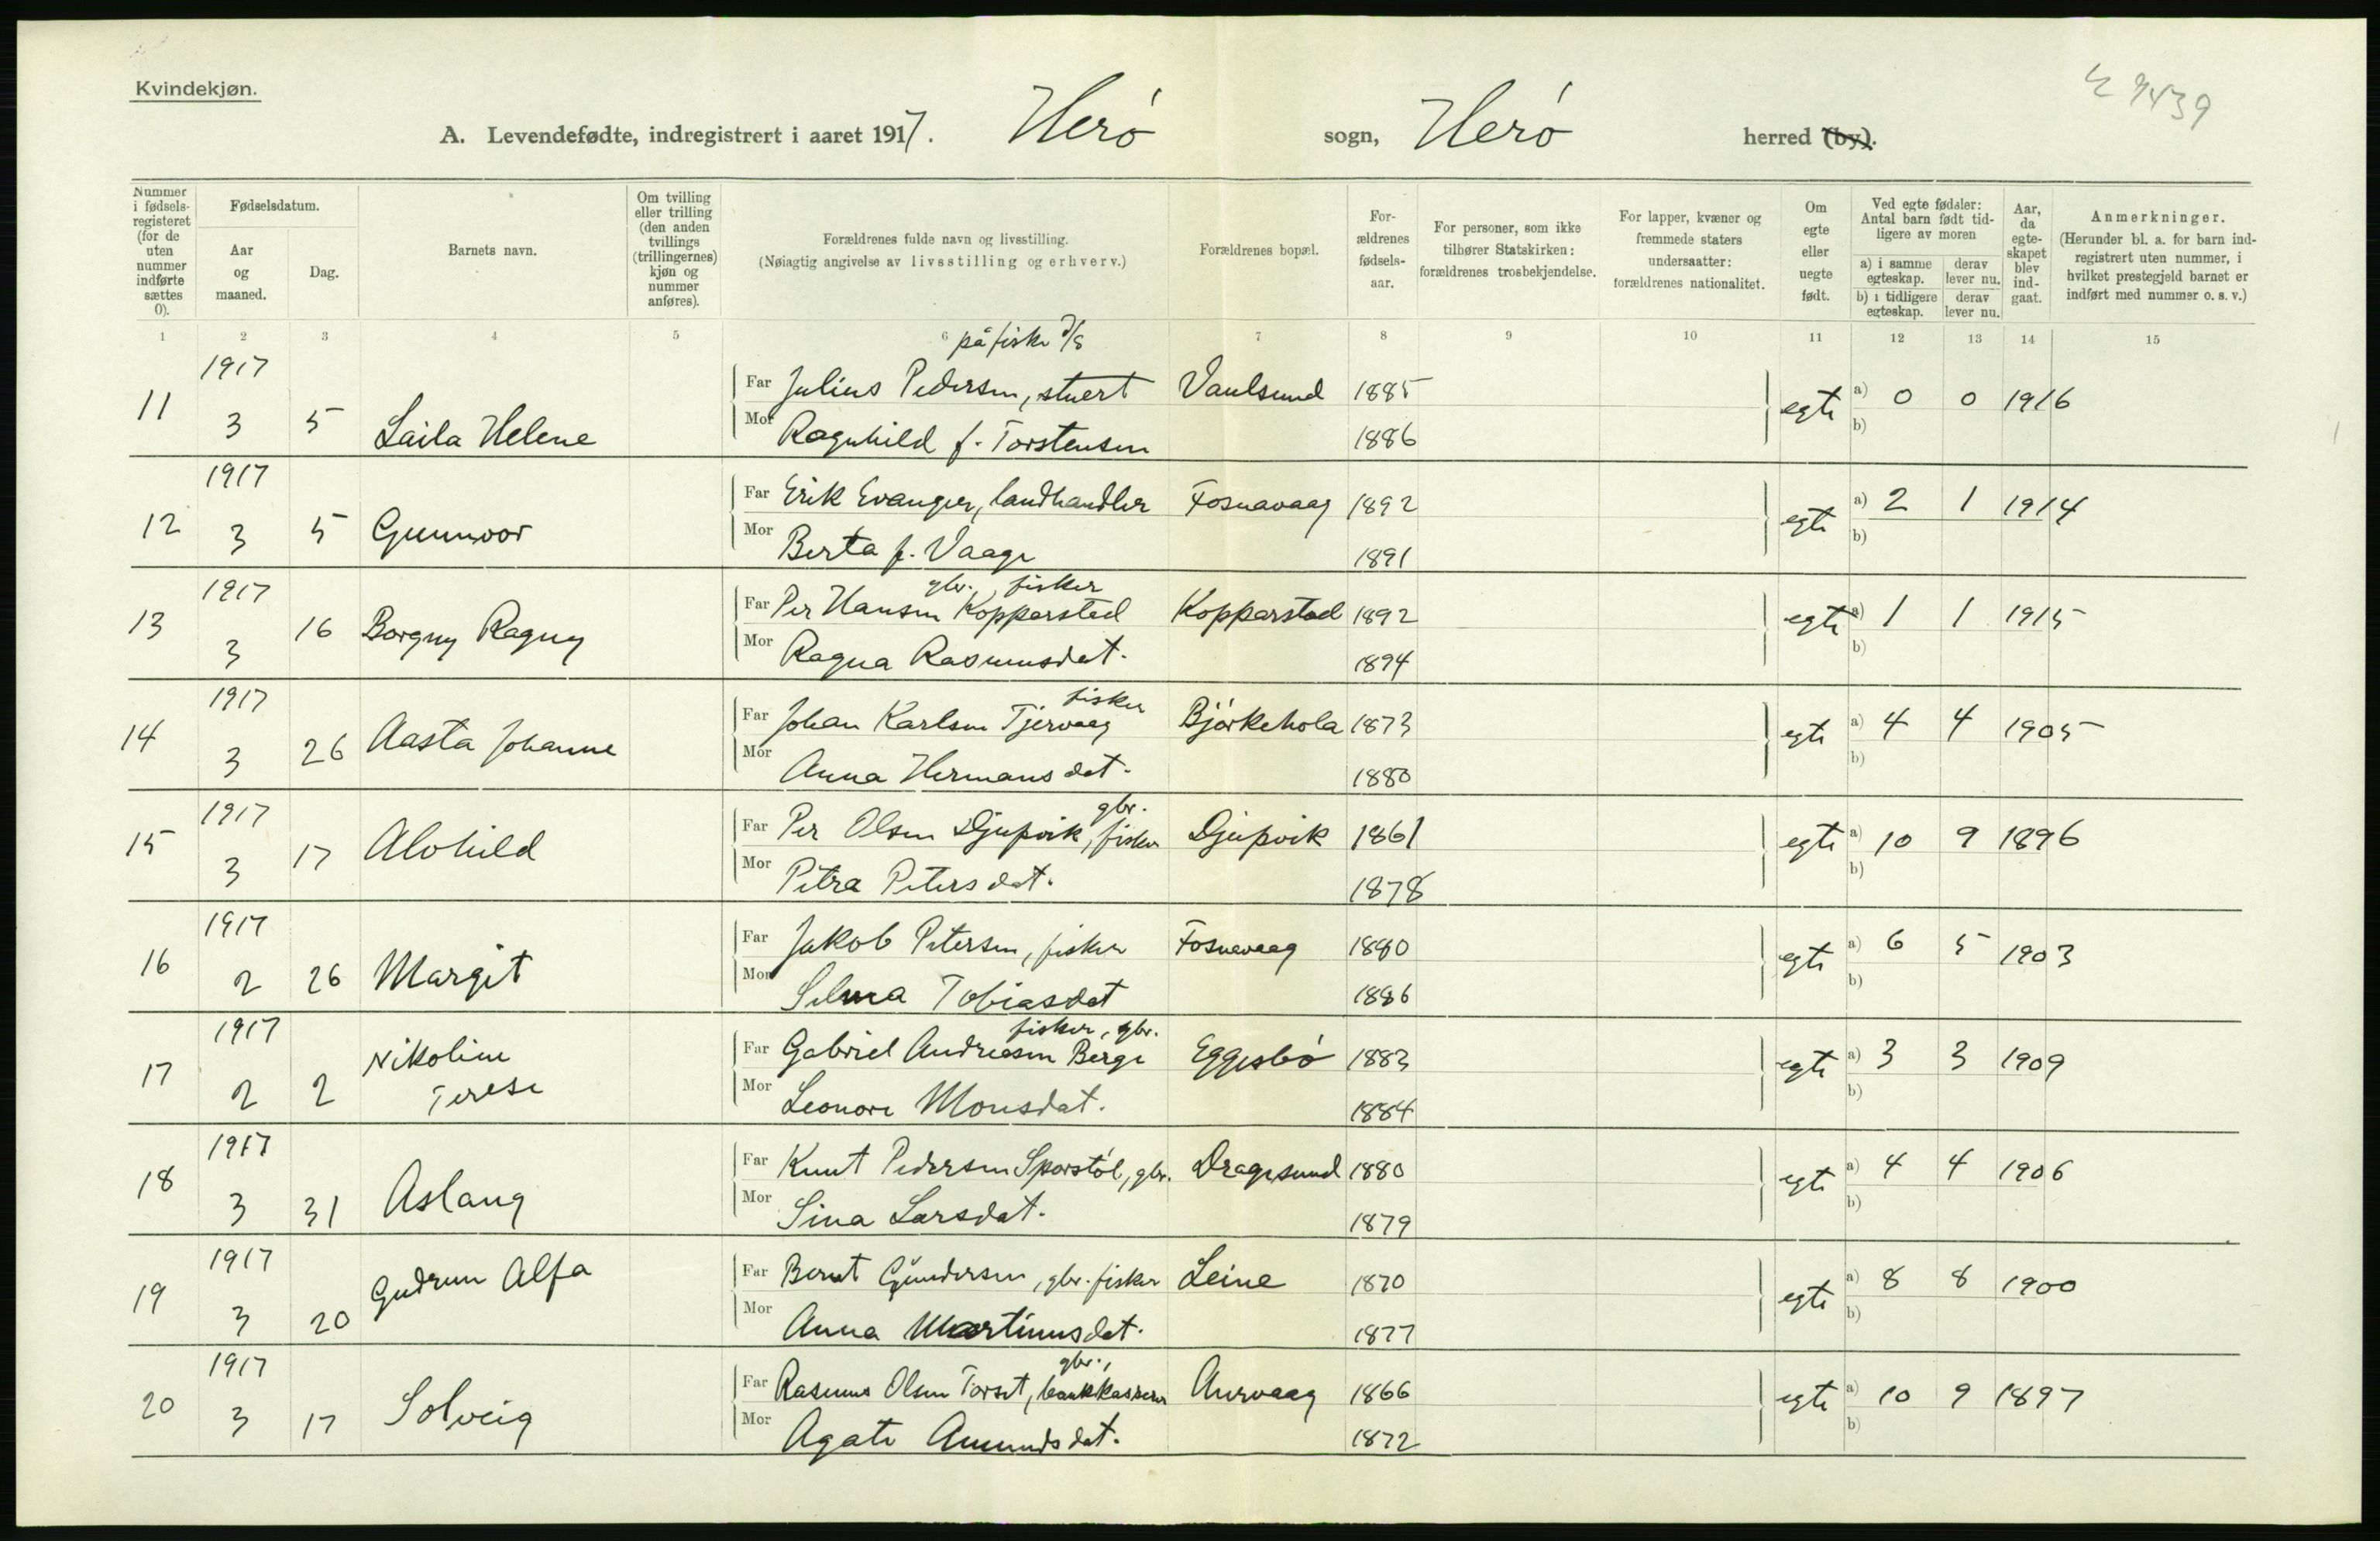 Kvindekjøn.
A. Levendefødte, indregistrert i aaret 1917. Herø sogn, Herø herred (by).
Nummer i fødselsregisteret (for de uten nummer indførte sættes 0).
Fødselsdatum.
Aar og maaned.
Dag.
Barnets navn.
Om tvilling eller trilling (den anden tvillings (trillingernes) kjøn og nummer anføres).
Forældrenes fulde navn og livsstilling.
(Nøiagtig angivelse av livsstilling og erhverv.)
Forældrenes bopæl.
Forældrenes fødselsaar.
For personer, som ikke tilhører Statskirken: forældrenes trosbekjendelse.
For lapper, kvæner og fremmede staters undersaatter: forældrenes nationalitet.
Om egte eller uegte født.
Ved egte fødsler: Antal barn født tidligere av moren
a) i samme egteskap. derav lever nu.
b) i tidligere egteskap. derav lever nu.
Aar, da egteskapet blev indgaat.
Anmerkninger.
(Herunder bl. a. for barn indregistrert uten nummer, i hvilket prestegjeld barnet er indført med nummer o. s. v.)
1 2 3 4 5 6 7 8 9 10 11 12 13 14 15
på fiske d/s
11 1917 3 5 Laila Helene Far Julius Pedersen, stuert Vaulsund 1885 egte a) 0 0 1916
Mor Ragnhild f. Torstensen 1886 b)
12 1917 3 5 Gunnvor Far Erik Evanger, landhandler Fosnavaag 1892 egte a) 2 1 1914
Mor Berta f. Vaage 1891 b)
gbr., fisker
13 1917 3 16 Borgny Ragny Far Per Hansen Kopparstad Kopparstad 1892 egte a) 1 1 1915
Mor Ragna Rasmusdat. 1894 b)
fisker
14 1917 3 26 Aasta Johanne Far Johan Karlsen Tjervaag Bjørkehola 1873 egte a) 4 4 1905
Mor Anna Hermansdat. 1880 b)
gbr.
15 1917 3 17 Alvhild Far Per Olsen Djupvik, fisker Djupvik 1861 egte a) 10 9 1896
Mor Petra Petersdat. 1878 b)
16 1917 2 26 Margit Far Jakob Petersen, fisker Fosnavaag 1880 egte a) 6 5 1903
Mor Selma Tobiasdat 1886 b)
fisker, gbr.
17 1917 2 2 Nikoline Terese Far Gabriel Andreasen Berge Eggesbø 1883 egte a) 3 3 1909
Mor Leonore Monsdat. 1884 b)
18 1917 3 31 Aslaug Far Knut Pedersen Sporstøl, gbr. Dragesund 1880 egte a) 4 4 1906
Mor Sina Larsdat. 1879 b)
19 1917 3 20 Gudrun Alfa Far Bernt Gundersen, gbr. fisker Leine 1870 egte a) 8 8 1900
Mor Anna Martinusdat. 1877 b)
gbr.,
20 1917 3 17 Solveig Far Rasmus Olsen Torset, bankkasserer Aurvaag 1866 egte a) 10 9 1897
Mor Agate Amundsdat. 1872 b)